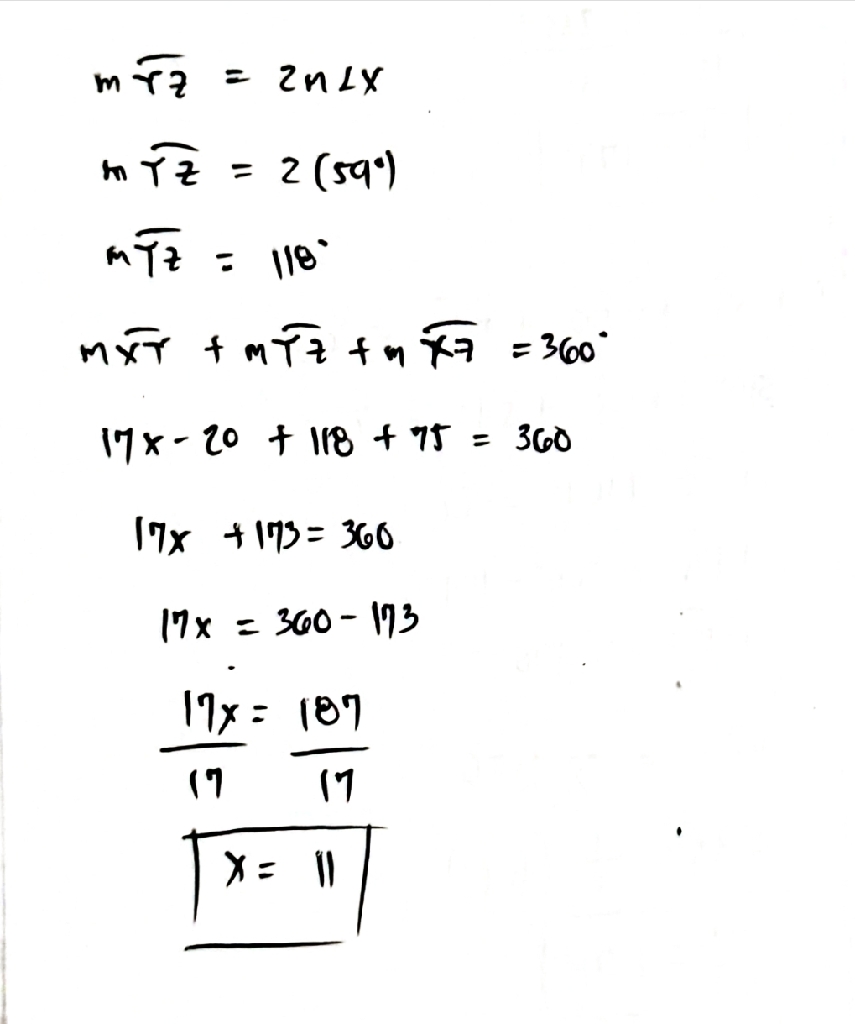 m YZ = 2m∠X
m YZ = 2(59°)
m YZ = 118°
m XY + m YZ + m XZ = 360°
17x - 20 + 118 + 75 = 360
17x + 173 = 360
17x = 360 - 173
17x = 187
17 17
x = 11